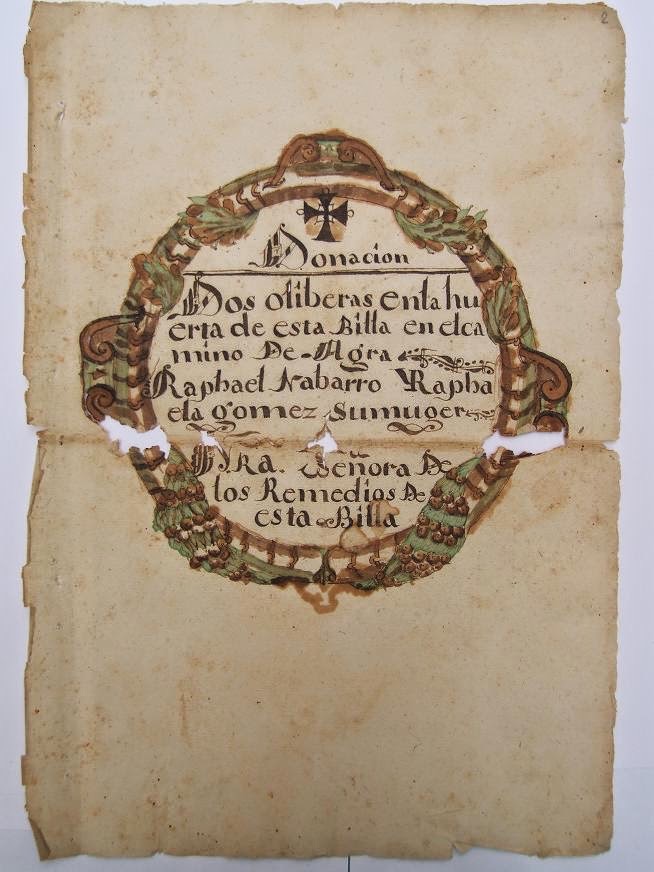 2
Donacion
Dos oliberas en la hu
erta de esta Billa en el ca
mino De Agra
Raphael Nabarro Y Rapha
ela gomez su muger
A
Nra. Señora De
los Remedios De
esta Billa